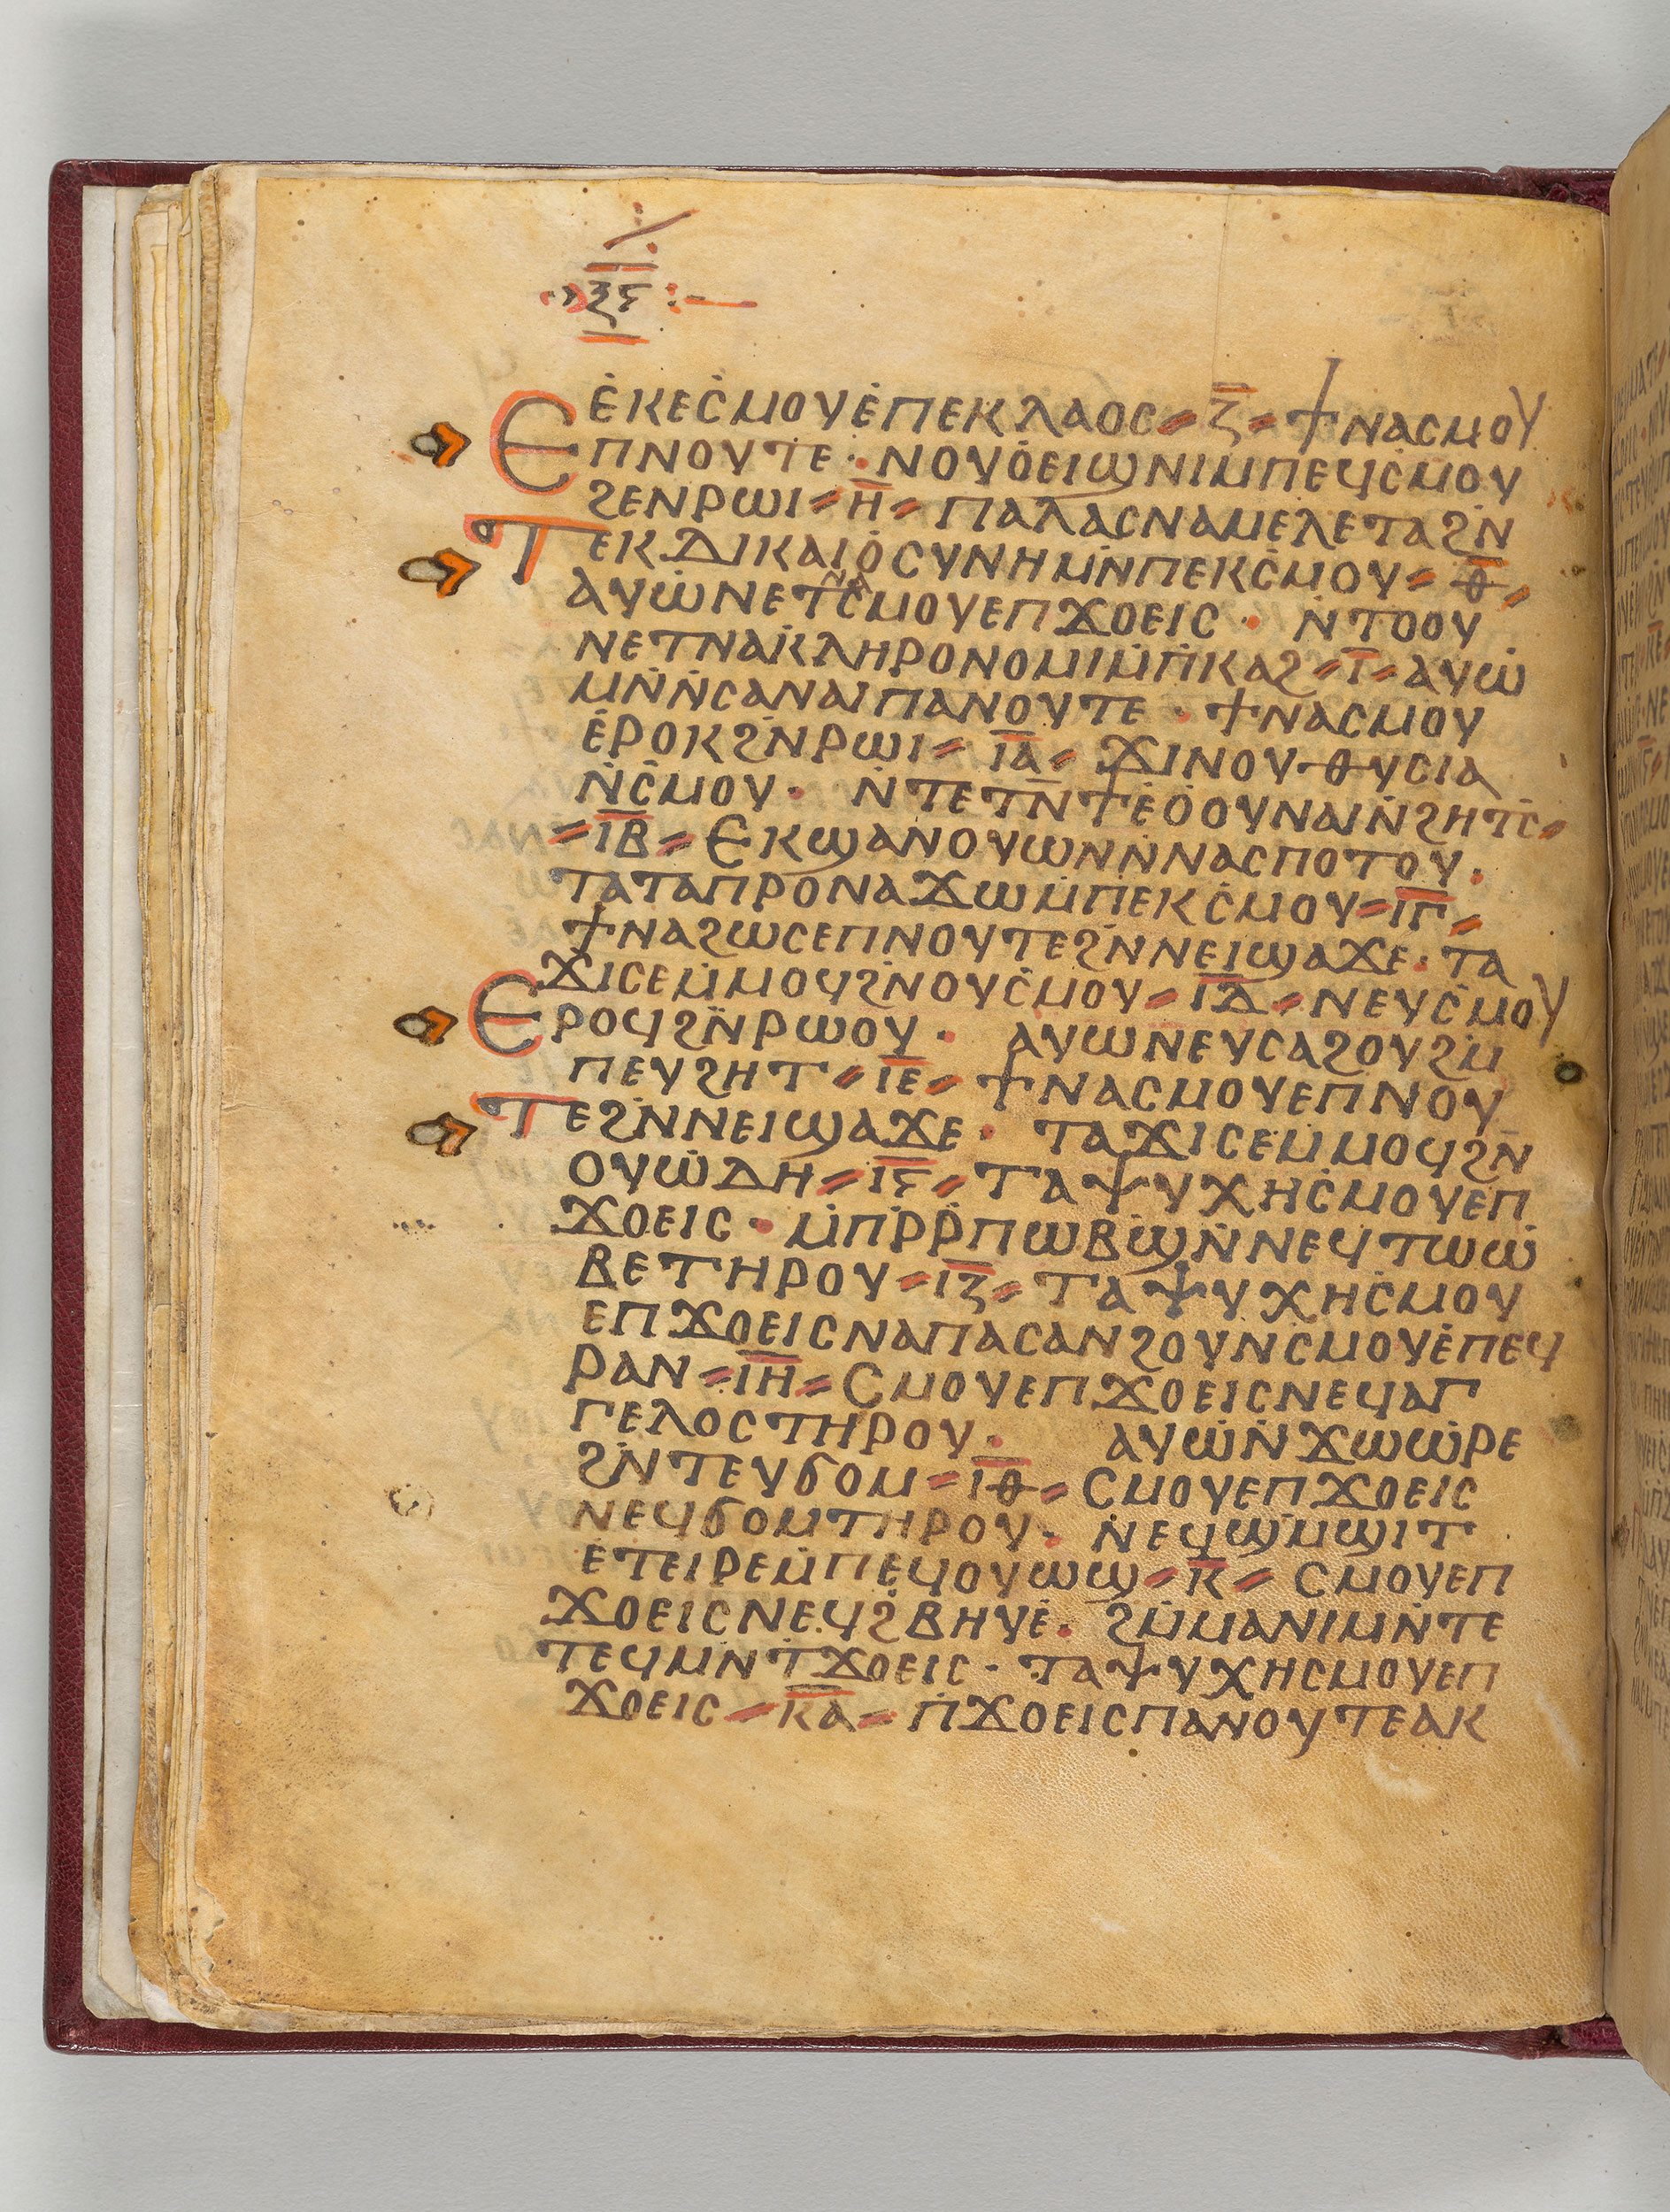 ⲝⲋ
ⲉ̇ⲕⲉⲥ̇ⲙⲟⲩⲉ̇ⲡⲉⲕⲗⲁⲟⲥ⸗ⲍ̅⸗ϯⲛⲁⲥⲙⲟⲩ
ⲉⲡⲛⲟⲩⲧⲉ · ⲛⲟⲩⲟ̇ⲉⲓϣⲛⲓⲙⲡⲉϥⲥ̇ⲙⲟⲩ
ϩⲉⲛⲣⲱⲓ⸗ⲏ̅⸗ⲡⲁⲗⲁⲥⲛⲁⲙⲉⲗⲉⲧⲁϩⲛ̇
ⲧⲉⲕⲇⲓⲕⲁⲓⲟ̇ⲥⲩⲛⲏⲙⲛ̇ⲡⲉⲕⲥ̇ⲙⲟⲩ⸗ⲑ̅⸗
ⲁⲩⲱ̇ⲛⲉⲧⲛⲁⲥⲙⲟⲩⲉⲡϫⲟⲉⲓⲥ · ⲛ̇ⲧⲟⲟⲩ
ⲛⲉⲧⲛⲁⲕ̇ⲗⲏⲣⲟⲛⲟⲙⲓⲙ̇ⲡ̇ⲕⲁϩ⸗ⲓ̅⸗ⲁⲩⲱ̇
ⲙⲛ̇ⲛ̇ⲥⲁⲛⲁⲓⲡⲁⲛⲟⲩⲧⲉ · ϯⲛⲁⲥⲙⲟⲩ
ⲉ̇ⲣⲟⲕϩⲛ̇ⲣⲱⲓ⸗ⲓ̅ⲁ̅⸗ϫⲓⲛⲟⲩⲑⲩⲥⲓⲁ
ⲛ̇ⲥ̇ⲙⲟⲩ · ⲛ̇ⲧⲉⲧⲛ̅ϯⲉ̇ⲟ̇ⲟⲩⲛⲁⲓⲛ̇ϩⲏⲧⲥ̇⸗
⸗ⲓ̅ⲃ̅⸗ⲉⲕϣⲁⲛⲟⲩⲱⲛⲛ̇ⲛⲁⲥⲡⲟⲧⲟⲩ ·
ⲧⲁⲧⲁⲡⲣⲟⲛⲁϫⲱⲙ̇ⲡⲉⲕⲥ̇ⲙⲟⲩ⸗ⲓ̅ⲅ̅⸗
ϯⲛⲁϩⲱⲥⲉⲡⲛⲟⲩⲧⲉϩⲛ̇ⲛⲉⲓϣⲁϫⲉ · ⲧⲁ
ϫⲓⲥⲉⲙ̇ⲙⲟϥϩⲛ̇ⲟⲩⲥ̇ⲙⲟⲩ⸗ⲓ̅ⲇ̅⸗ⲛⲉⲩⲥ̇ⲙⲟⲩ
ⲉⲣⲟϥϩⲛ̇ⲣⲱⲟⲩ · ⲁⲩⲱⲛⲉⲩⲥⲁϩⲟⲩϩⲙ
ⲡⲉⲩϩⲏⲧ⸗ⲓ̅ⲉ̅⸗ϯⲛⲁⲥⲙⲟⲩⲉⲡⲛⲟⲩ
ⲧⲉϩⲛ̇ⲛⲉⲓϣⲁϫⲉ · ⲧⲁϫⲓⲥⲉⲙ̇ⲙⲟϥϩⲛ̅
ⲟⲩⲱ̇ⲇⲏ⸗ⲓ̅ⲋ̅⸗ⲧⲁⲯⲩⲭⲏⲥ̇ⲙⲟⲩⲉⲡ
ϫⲟⲉⲓⲥ · ⲙ̇ⲡⲣ̇ⲣ̇ⲡⲱⲃϣ̇ⲛ̇ⲛⲉϥⲧⲱⲱ̇
ⲃⲉⲧⲏⲣⲟⲩ⸗ⲓ̅ⲍ̅⸗ⲧⲁⲯⲩⲭⲏⲥ̇ⲙⲟⲩ
ⲉⲡϫⲟⲉⲓⲥⲛⲁⲡⲁⲥⲁⲛϩⲟⲩⲛⲥⲙⲟⲩⲉ̇ⲡⲉϥ
ⲣⲁⲛ⸗ⲓ̅ⲏ̅⸗ⲥⲙⲟⲩⲉⲡϫⲟⲉⲓⲥⲛⲉϥⲁⲅ
ⲅⲉⲗⲟⲥⲧⲏⲣⲟⲩ · ⲁⲩⲱ̇ⲛ̇ϫⲱⲱ̇ⲣⲉ
ϩⲛ̇ⲧⲉⲩϭⲟⲙ⸗ⲓ̅ⲑ̅⸗ⲥⲙⲟⲩⲉⲡϫⲟⲉⲓⲥ
ⲛⲉϥϭⲟⲙⲧⲏⲣⲟⲩ · ⲛⲉϥϣⲙϣⲓⲧ
ⲉ̇ⲧⲉⲓⲣⲉⲙ̇ⲡⲉϥⲟⲩⲱϣ⸗ⲕ̅⸗ⲥⲙⲟⲩⲉⲡ
ϫⲟⲉⲓⲥⲛⲉϥϩ̇ⲃⲏⲩⲉ̇ · ϩⲙ̇ⲙⲁⲛⲓⲙⲛ̇ⲧⲉ
ⲧⲉϥⲙⲛⲧ̇ϫⲟⲉⲓⲥ · ⲧⲁⲯⲩⲭⲏⲥⲙⲟⲩⲉⲡ
ϫⲟⲉⲓⲥ⸗ⲕ̅ⲁ̅⸗ⲡ̇ϫⲟⲉⲓⲥⲡⲁⲛⲟⲩⲧⲉⲁⲕ